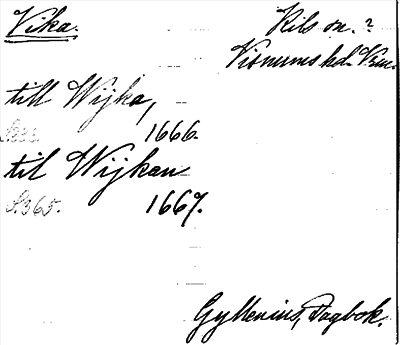 Vika. Kils sn.?
Visnums hd. Vrm.
till Wijka,
1666.
til Wijkan
S. 365. 1667.
Gyllenius, Dagbok.